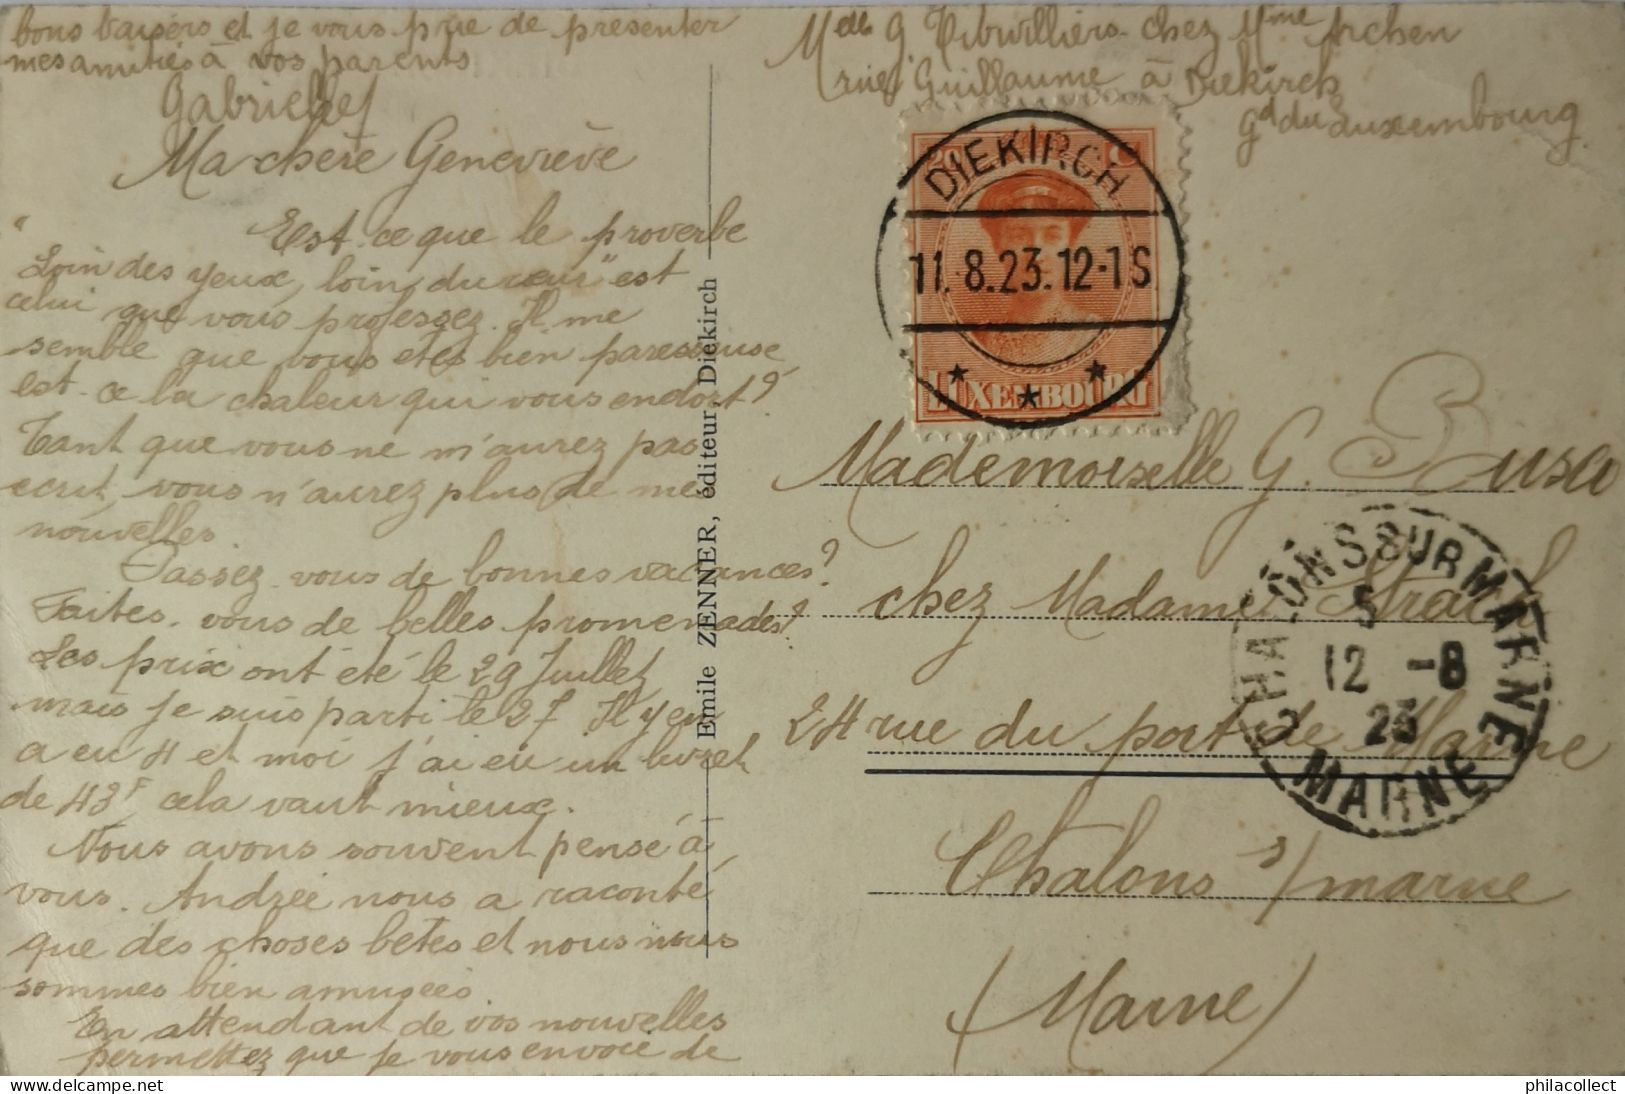 bons baisers et je vous prie de presenter
mes amitiés à vos parents
Gabrielle
Ma chère Geneviève
Est-ce que le proverbe
"Loin des yeux, loin du cœur" est
celui que vous professez. Il me
semble que vous etes bien paresseuse
est-ce la chaleur qui vous endort?
Tant que vous ne m'aurez pas
ecrit, vous n'aurez plus de mes
nouvelles.
Passez-vous de bonnes vacances?
Faites-vous de belles promenades?
Les prix ont été le 29 Juillet
mais je suis parti le 27 Il y en
a eu 4 et moi j'ai eu un livret
de 43f cela vaut mieux.
Nous avons souvent pensé à
vous. Andrée nous a raconté
que des choses betes et nous nous
sommes bien amusées
En attendant de vos nouvelles
permettez que je vous envoie de
Emile ZENNER, éditeur, Diekirch
Melle G. chez Mme Archen
rue Guillaume à Diekirch
Gd du Luxembourg
20 C
LUXEMBOURG
DIEKIRCH
11.8.23.12-1S
Mademoiselle G.
chez Madame
24 rue du port de Marne
Chalons s/ marne
(Marne)
CHALONS SUR MARNE
5
12 -8
23
MARNE
philacollect